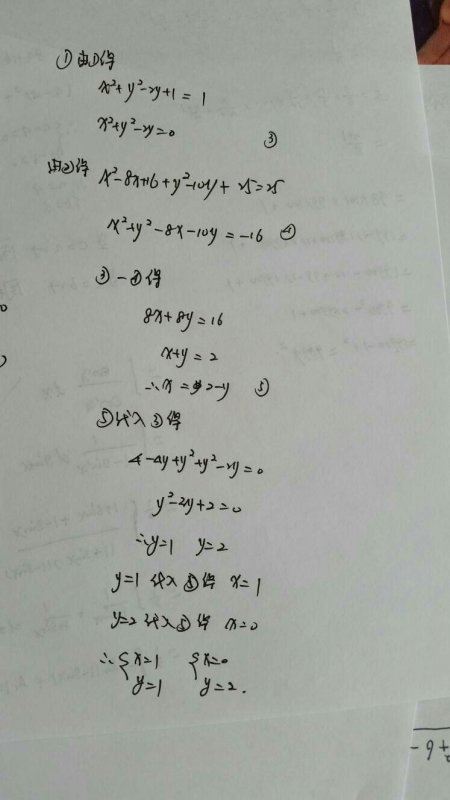 ① 由①得
x²+y²-2y+1=1
x²+y²-2y=0 ③
由②得 x²-8x+16+y²-10y+25=25
x²+y²-8x-10y=-16 ④
③-④得
8x+8y=16
x+y=2
∴x=2-y ⑤
⑤代入③得
4-4y+y²+y²-2y=0
y²-2y+2=0
∴y=1 y=2
y=1 代入⑤得 x=1
y=2 代入⑤得 x=0
∴{x=1 {x=0
y=1 y=2.